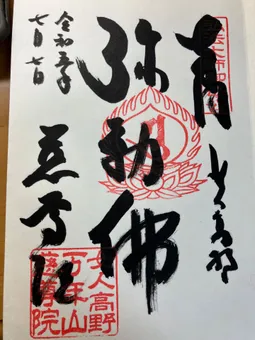 女人高野
弥勒佛
令和五年
七月七日
慈尊院
女人高野
万年山
慈尊院